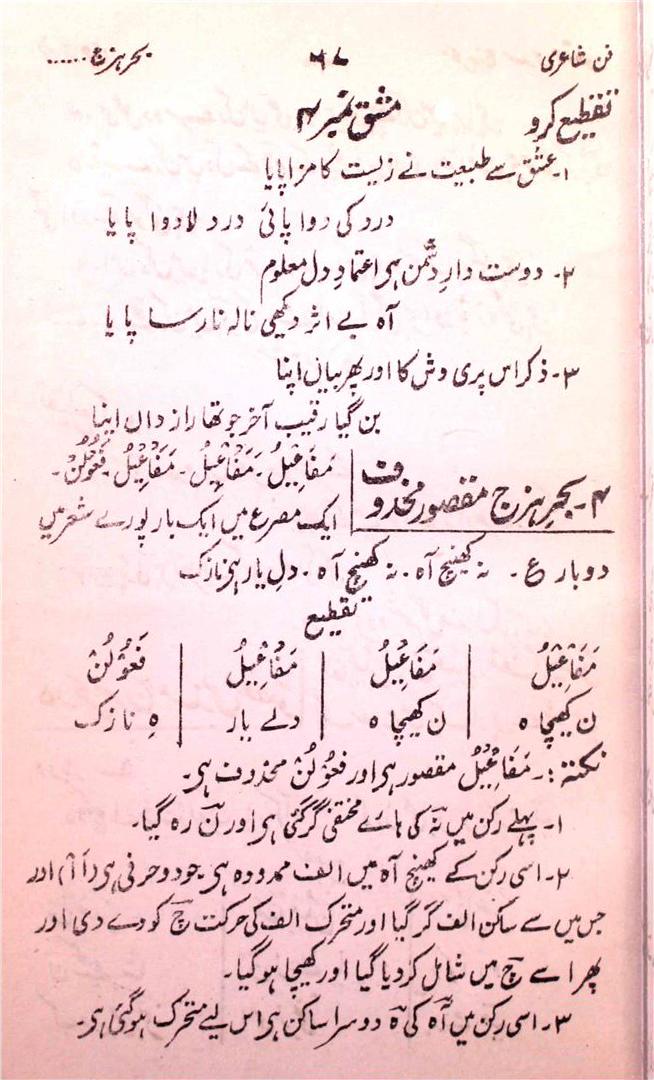 فن شاعری ۶۷ بحر ہزج......
تقطیع کرو مشق نمبر ۴
۱۔ عشق سے طبیعت نے زیست کا مزا پایا
درد کی دوا پائی درد لادوا پایا
۲۔ دوست دارِ دشمن ہی اعتمادِ دل معلوم
آہ بے اثر دیکھی نالہ نارسا پایا
۳۔ ذکر اس پری وش کا اور پھر بیاں اپنا
بن گیا رقیب آخر جو تھا راز داں اپنا
۴۔ بحرِ ہزج مقصور محذوف
مَفَاعِیْلُ۔ مَفَاعِیْلُ۔ مَفَاعِیْلُ۔ فَعُوْلُنْ۔
ایک مصرع میں ایک بار پورے شعر میں
دو بار ع۔ نہ کھینچ آہ۔ نہ کھینچ آہ۔ دلِ یار ہی نازک
تقطیع
مَفَاعِیْلُ | مَفَاعِیْلُ | مَفَاعِیْلُ | فَعُوْلُنْ
ن کھیچا ہ | ن کھیچا ہ | دلے یار | ہِ نازک
نکتہ:۔ مَفَاعِیْلُ مقصور ہی اور فعوْلُنْ محذوف ہی۔
۱۔ پہلے رکن میں نہ کی ہائے مختفی گر گئی ہی اور ن رہ گیا۔
۲۔ اسی رکن کے کھینچ آہ میں الف ممدودہ ہی جو دو حرفی ہی (اَ اْ) اور
جس میں سے ساکن الف گر گیا اور متحرک الف کی حرکت چ کو دے دی اور
پھر اسے چ میں شامل کر دیا گیا اور کھیچا ہو گیا۔
۳۔ اسی رکن میں آہ کی ہ دوسرا ساکن ہی اس لیے متحرک ہو گئی ہی۔